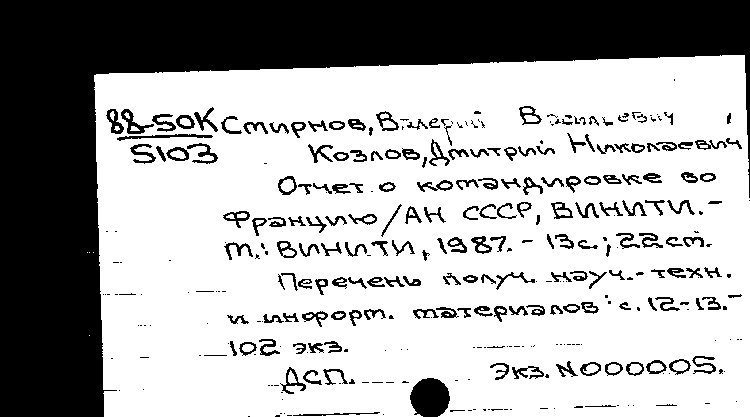 88-50К Смирнов, Валерий Васильевич,
5103 Козлов, Дмитрий Николаевич
Отчет о командировке во
Францию / АН СССР, ВИНИТИ. -
М.: ВИНИТИ, 1987. - 13с.; 22см.
Перечень получ. науч.-техн.
и информ. материалов: с. 12-13. -
102 экз.
ДСП. Экз. N000005.